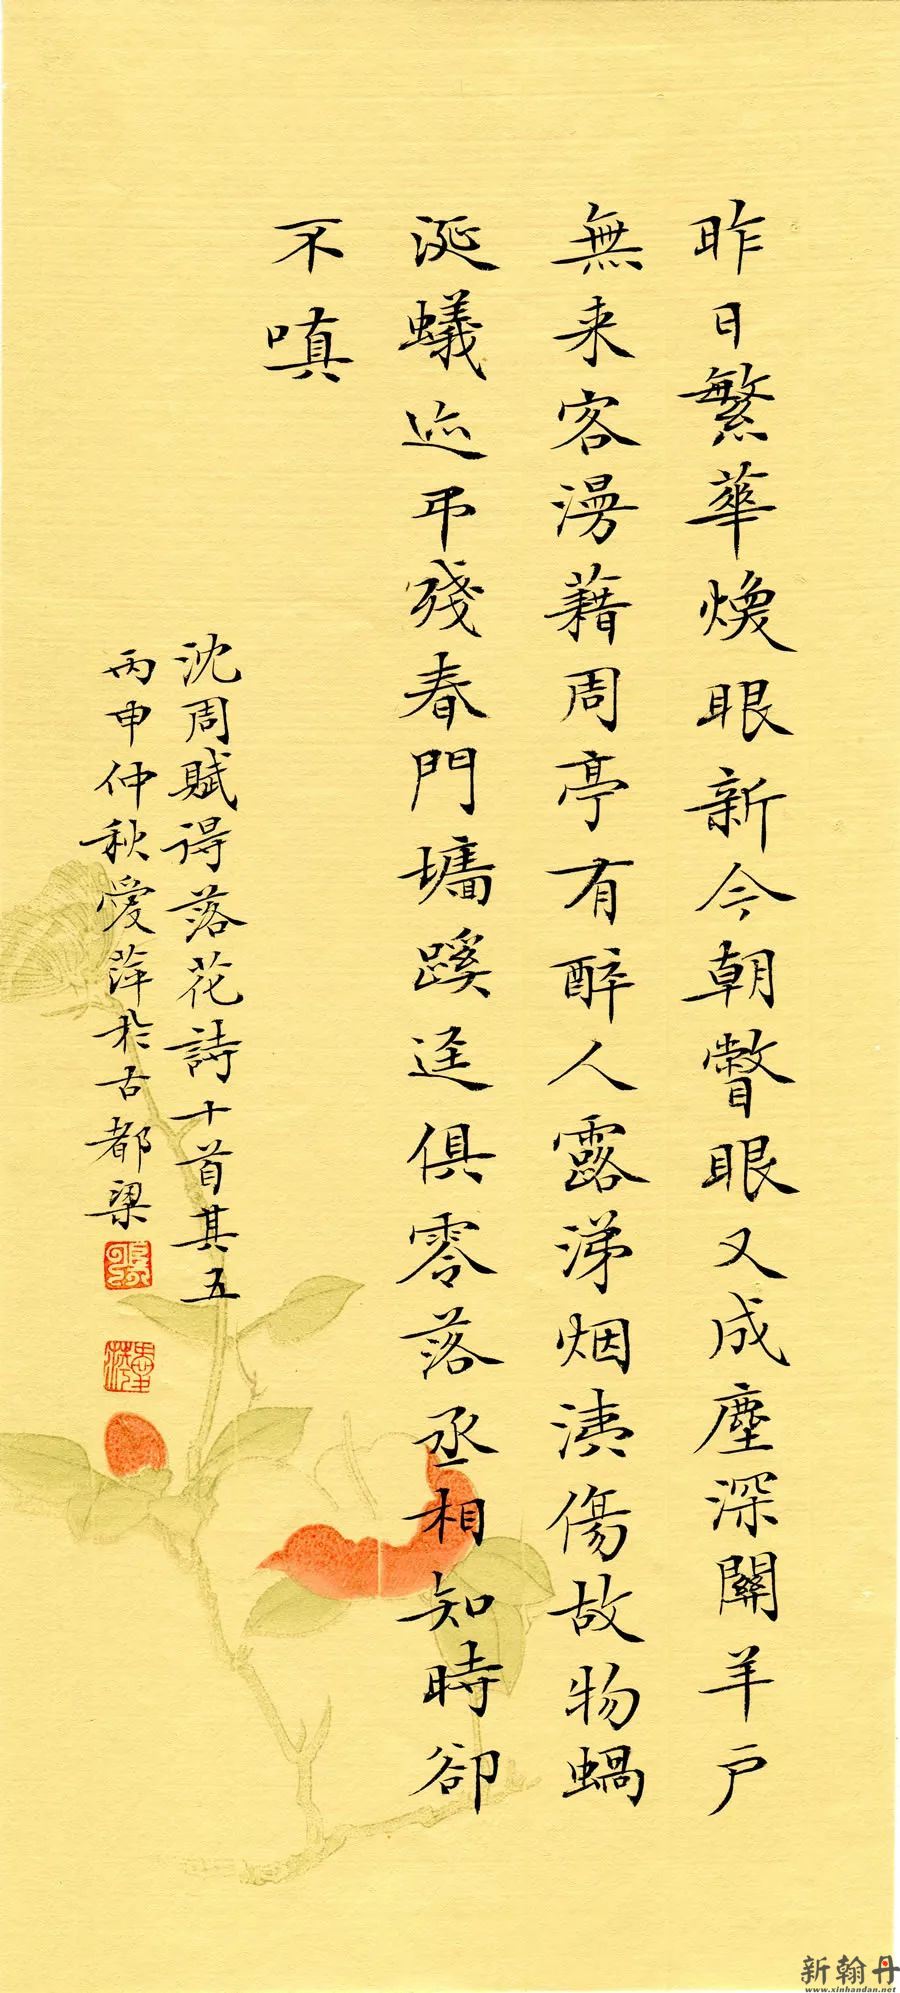 昨日繁華煥眼新今朝瞥眼又成塵深關羊戶
無来客漫藉周亭有醉人露涕烟洟傷故物蝸
涎蟻迹弔殘春門墻蹊逕俱零落丞相知時卻
不嗔
沈周賦得落花詩十首其五
丙申仲秋愛萍於古都梁
新翰丹
www.xinhandan.net